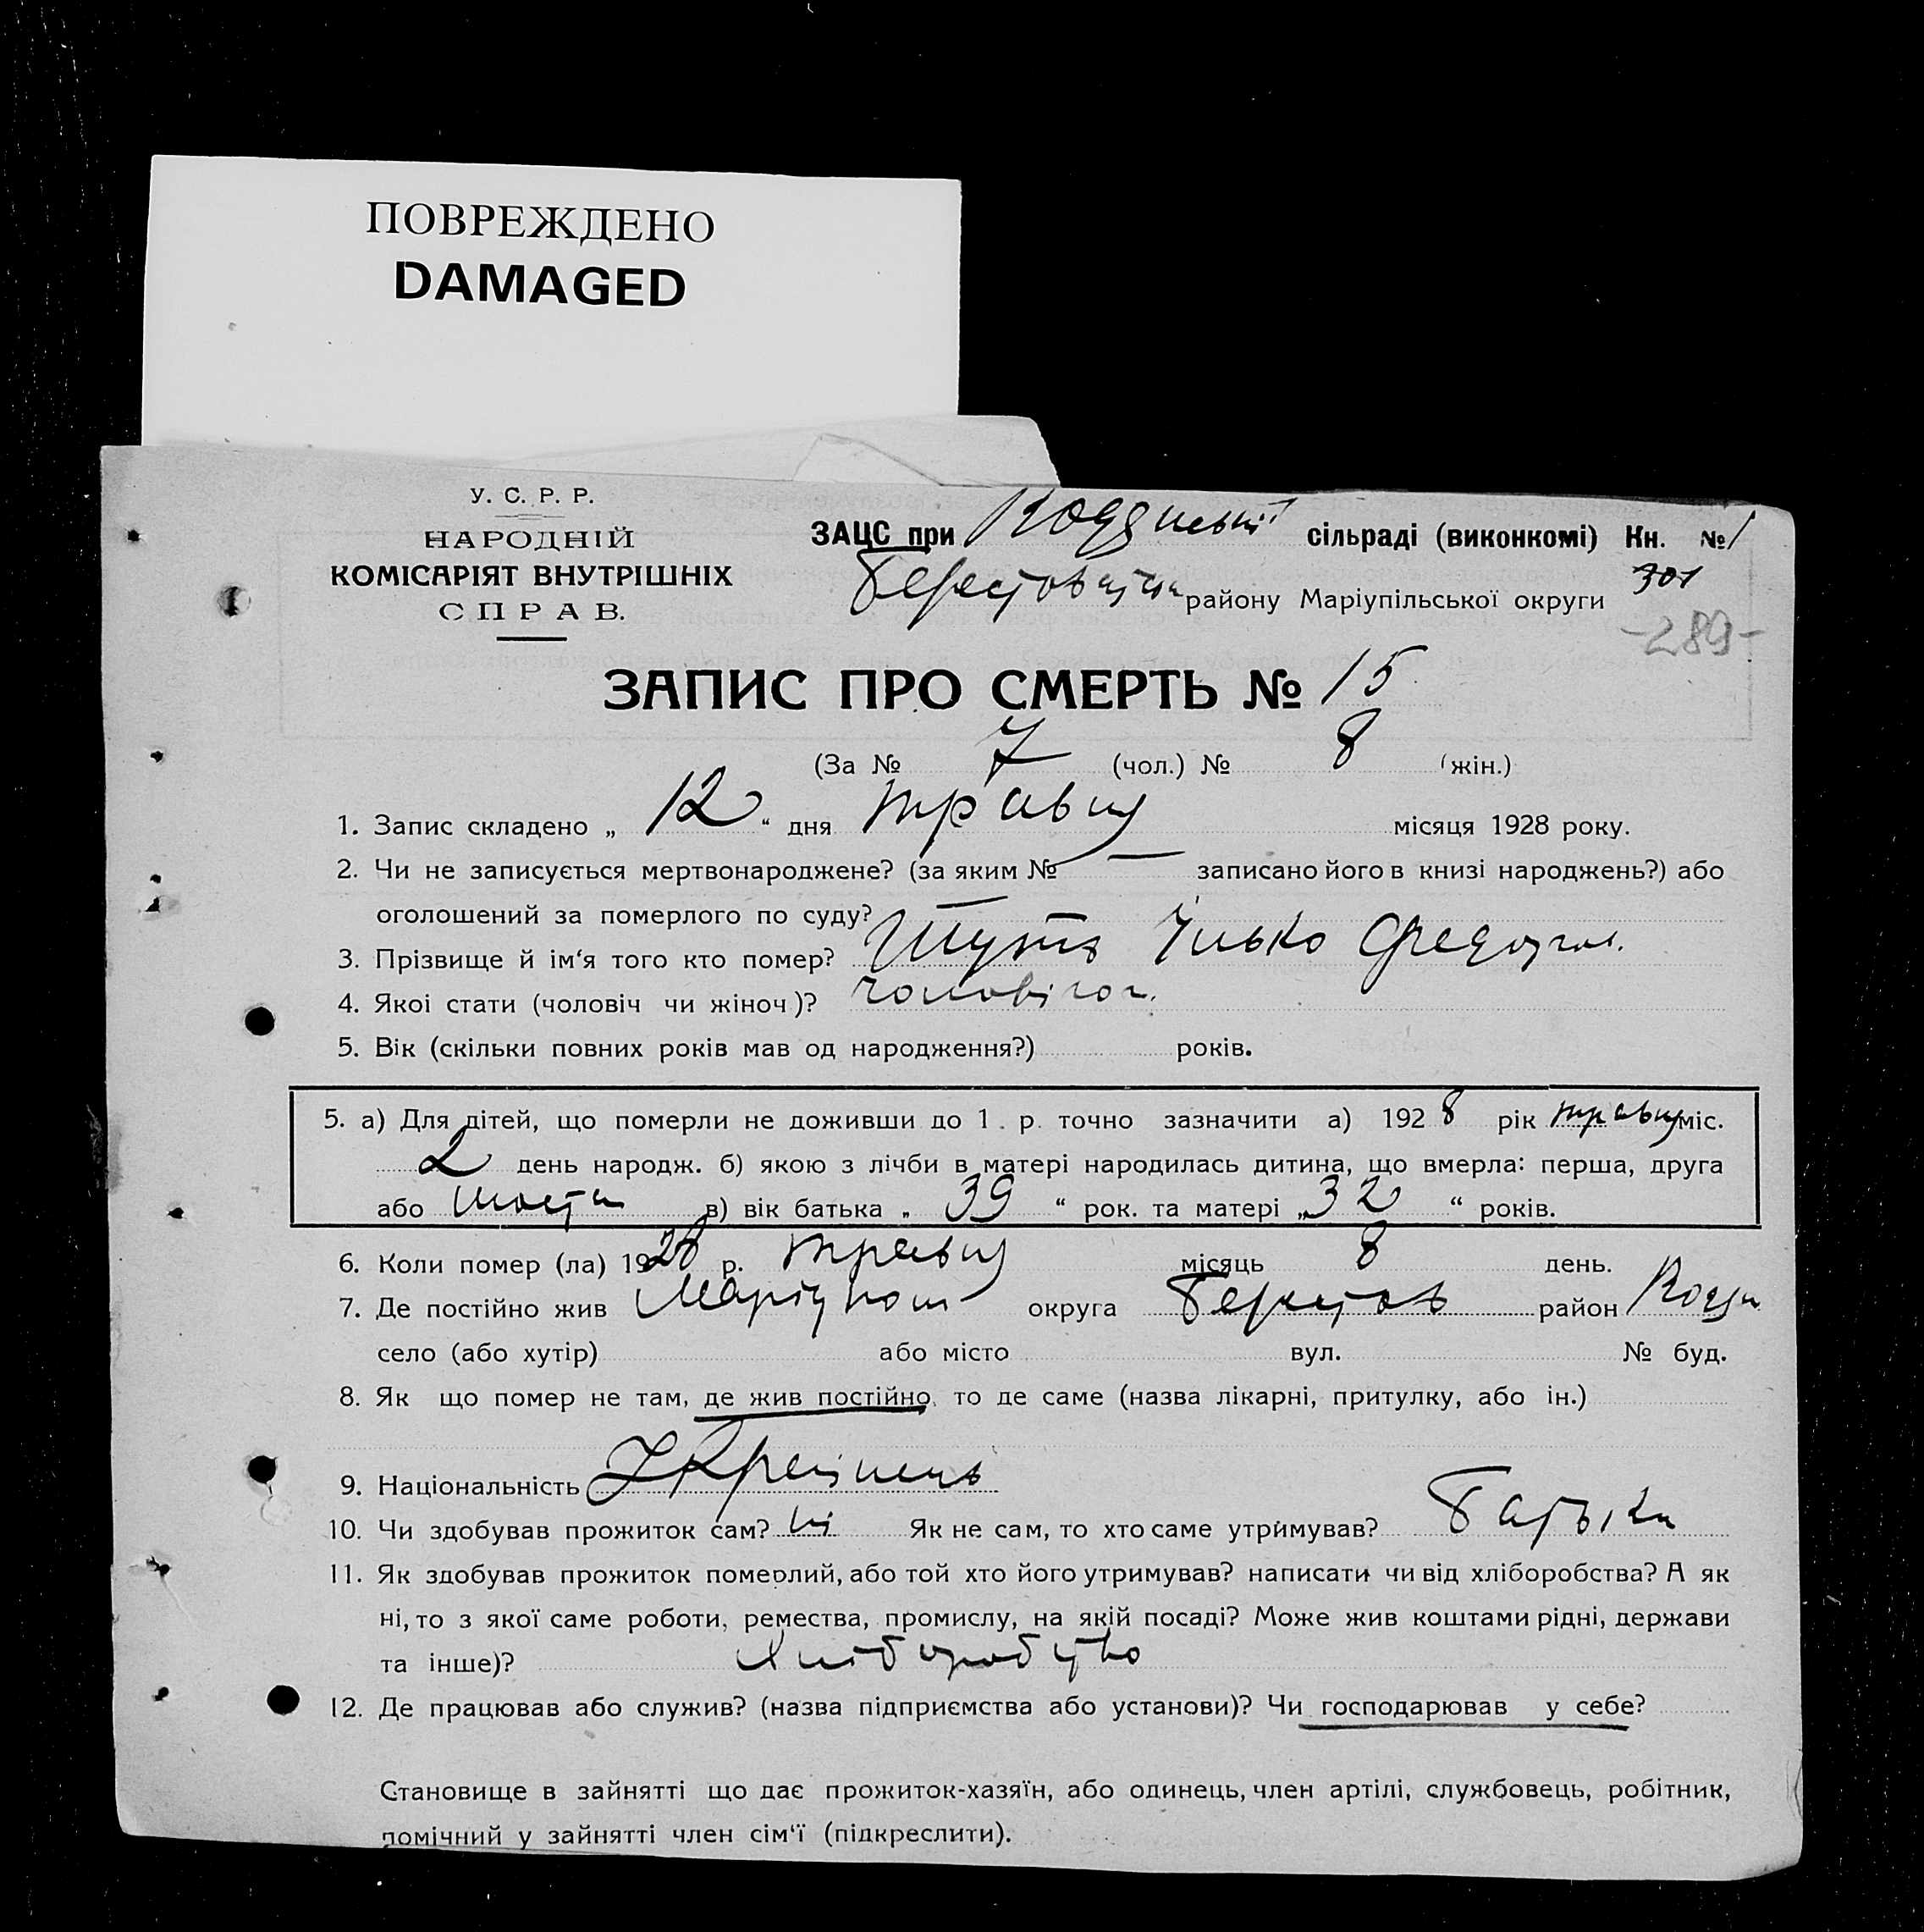 ПОВРЕЖДЕНО
DAMAGED
У. С. Р. Р.
НАРОДНІЙ
КОМІСАРІЯТ ВНУТРІШНІХ
СПРАВ.
ЗАЦС при сільраді (виконкомі) Кн. № 1
301
району Маріупільської округи
-289-
ЗАПИС ПРО СМЕРТЬ № 15
(За № 7 (чол.) № 8 (жін.)
1. Запис складено „ 12 “ дня травня місяця 1928 року.
2. Чи не записується мертвонароджене? (за яким № — записано його в книзі народжень?) або
оголошений за померлого по суду? —
3. Прізвище й ім‘я того кто помер? Ілько
4. Якоі стати (чоловіч чи жіноч)? чоловічої.
5. Вік (скільки повних років мав од народження?) років.
5. а) Для дітей, що померли не доживши до 1. р. точно зазначити а) 1928 рік травня міс.
2 день народж. б) якою з лічби в матері народилась дитина, що вмерла: перша, друга
або шоста в) вік батька „ 39 “ рок. та матері „ 32 “ років.
6. Коли помер (ла) 1928 р. травня місяць 8 день.
7. Де постійно жив Маріупол округа Берестов район
село (або хутір) або місто вул. № буд.
8. Як що помер не там, де жив постійно, то де саме (назва лікарні, притулку, або ін.)
9. Національність Українець
10. Чи здобував прожиток сам? ні Як не сам, то хто саме утримував? Батько
11. Як здобував прожиток померлий, або той хто його утримував? написати чи від хліборобства? А як
ні, то з якої саме роботи, ремества, промислу, на якій посаді? Може жив коштами рідні, держави
та інше)? хліборобство
12. Де працював або служив? (назва підприємства або установи)? Чи господарював у себе?
Становище в зайнятті що дає прожиток-хазяїн, або одинець, член артілі, службовець, робітник,
помічний у зайнятті член сім‘ї (підкреслити).